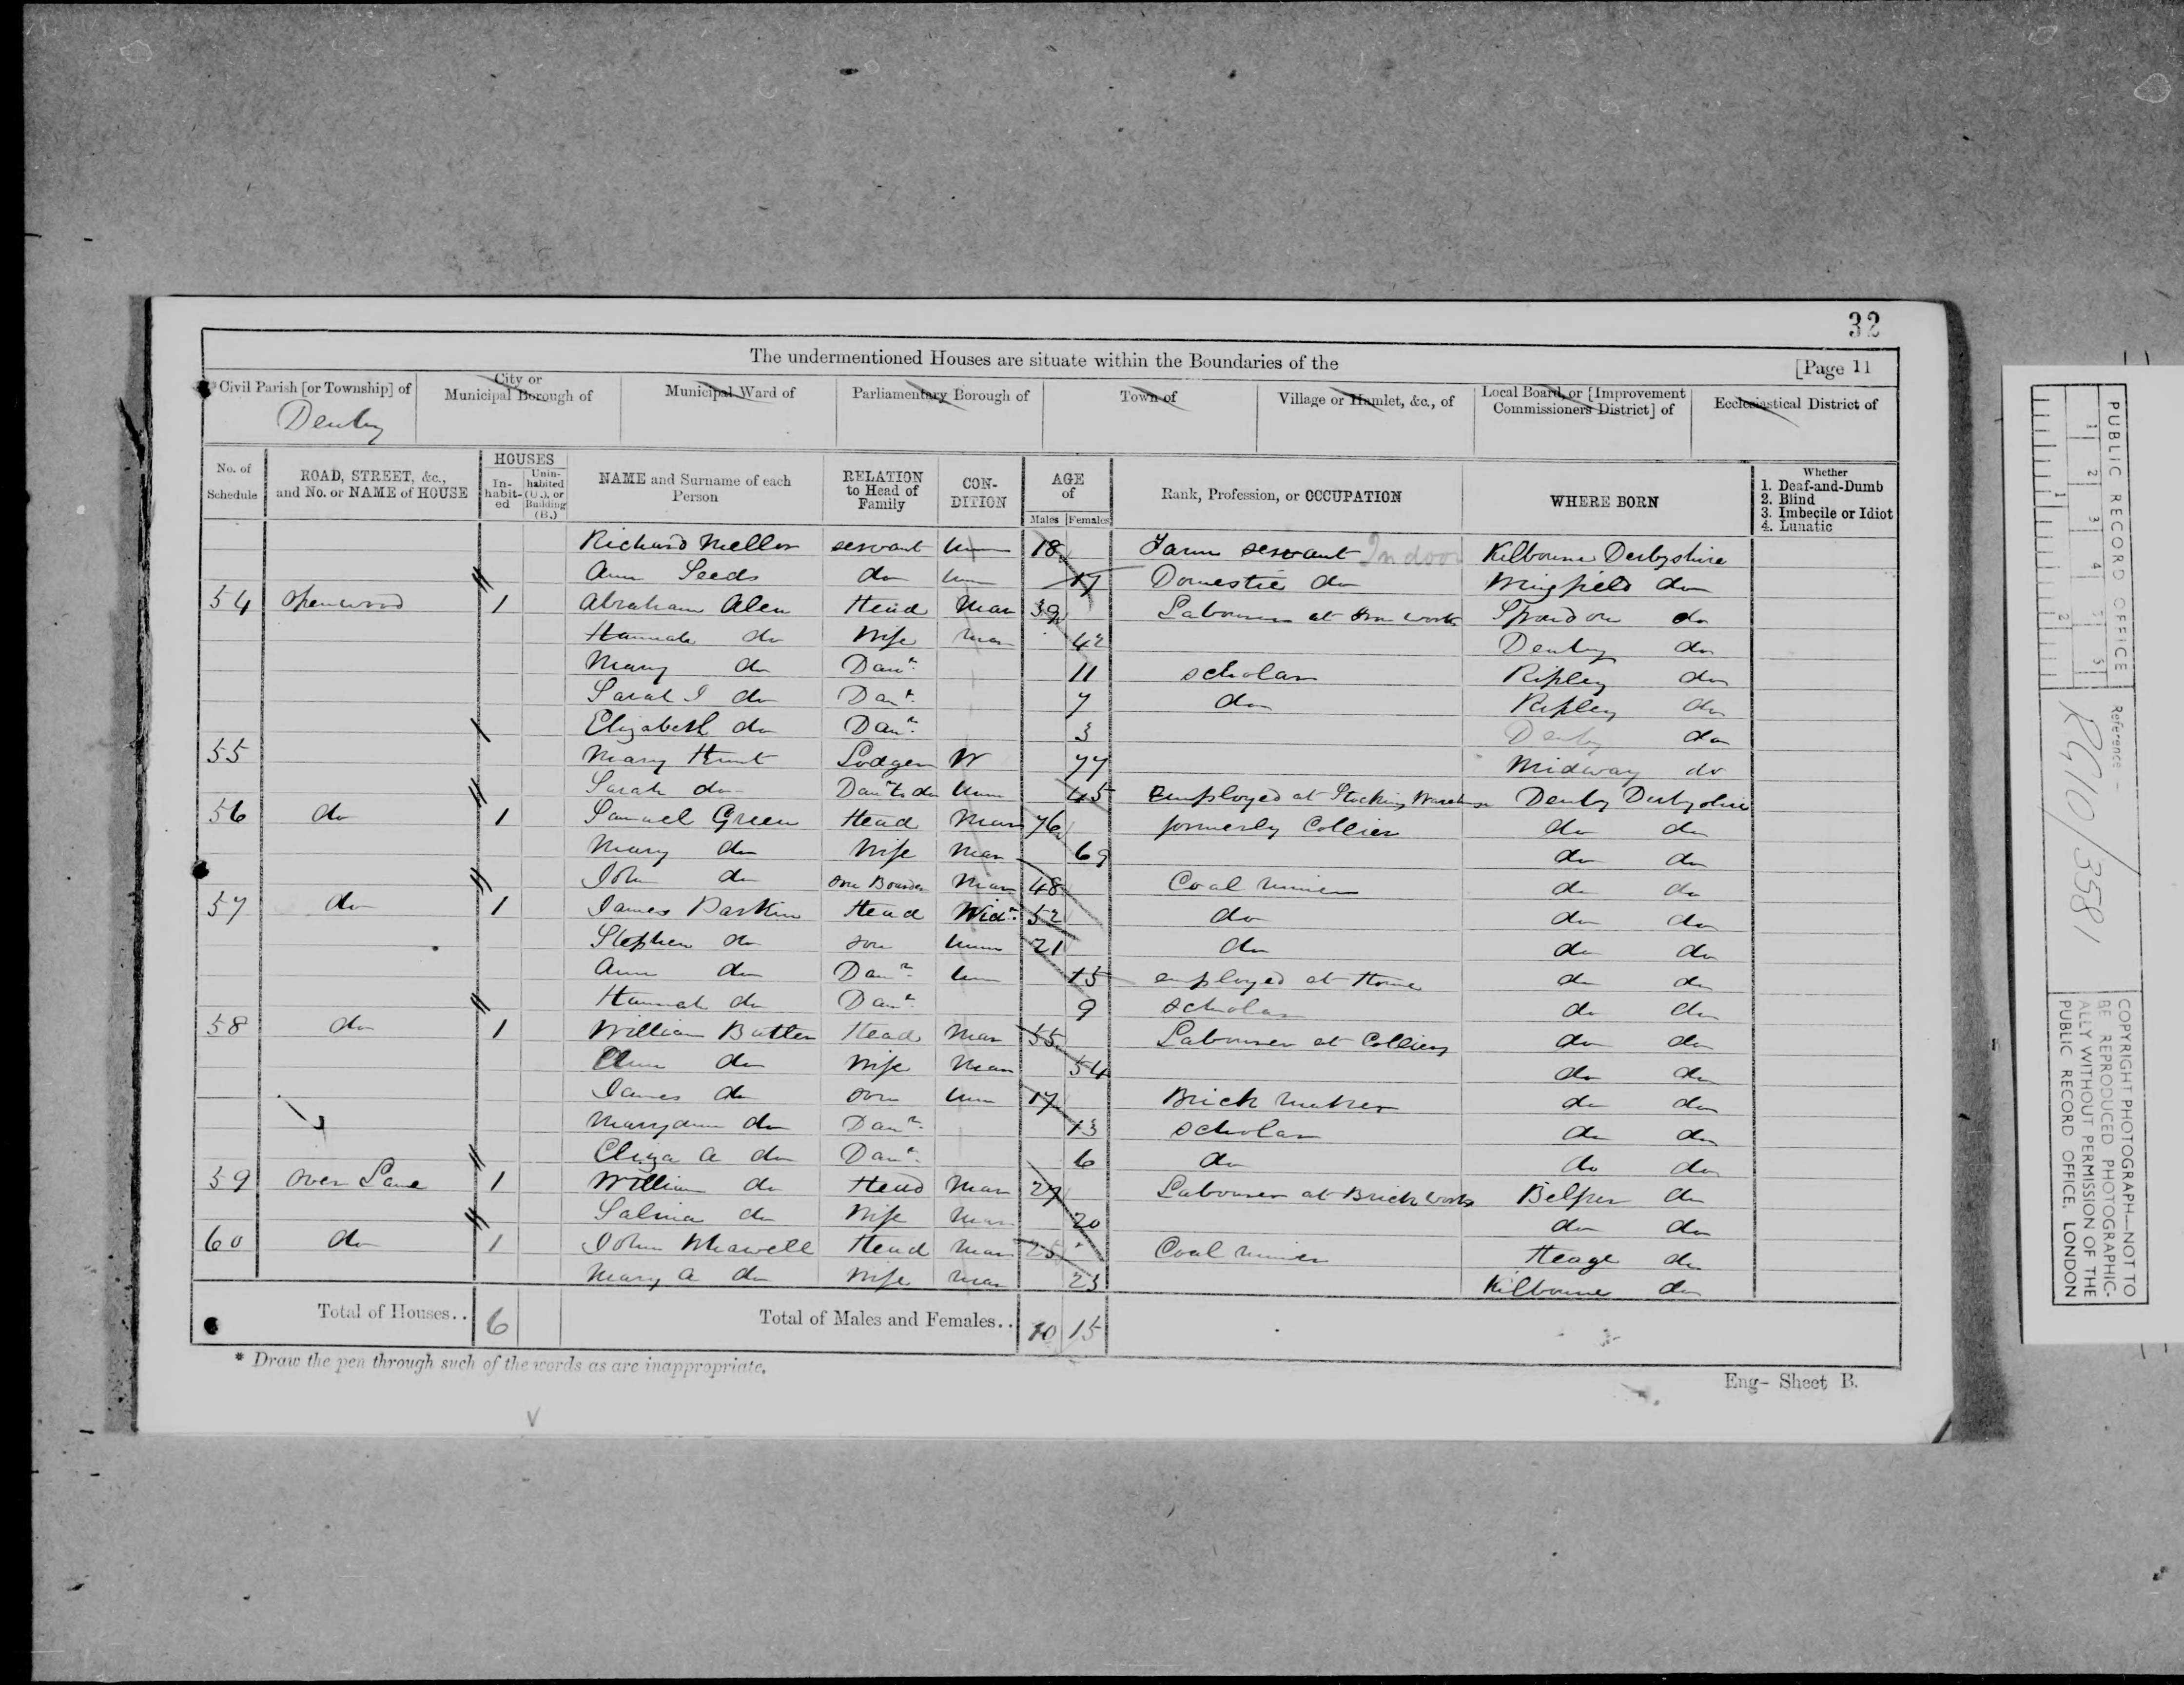 32
The undermentioned Houses are situate within the Boundaries of the
[Page 11
Civil Parish [or Township] of
City or Municipal Borough of
Municipal Ward of
Parliamentary Borough of
Town of
Village or Hamlet, &c., of
Local Board, or [Improvement Commissioners District] of
Ecclesiastical District of
Denby
No. of Schedule
ROAD, STREET, &c., and No. or NAME of HOUSE
HOUSES
In-habit-ed
Unin-habited (U.), or Building (B.)
NAME and Surname of each Person
RELATION to Head of Family
CON-DITION
AGE of
Males Females
Rank, Profession, or OCCUPATION
WHERE BORN
Whether
1. Deaf-and-Dumb
2. Blind
3. Imbecile or Idiot
4. Lunatic
Richard Mellor servant Unm 18 Farm servant Indoor Kilbourne Derbyshire
Ann Seeds do Unm 17 Domestic do Wingfield do
54 Openwood 1 Abraham Alen Head Mar 39 Labourer at Iron works Spondon do
Hannah do Wife Mar 42 Denby do
Mary do Daur. 11 scholar Ripley do
Sarah I do Daur. 7 do Ripley do
Elizabeth do Daur. 3 Denby do
55 Mary Hunt Lodger W 77 Midway do
Sarah do Daur to do Unm 45 Employed at Stocking Warehouse Denby Derbyshire
56 do 1 Samuel Green Head Mar 76 formerly Collier do do
Mary do Wife Mar 69 do do
John do son Boarder Mar 48 Coal miner do do
57 do 1 James Parkin Head Widr. 52 do do do
Stephen do son Unm 21 do do do
Ann do Daur. Unm 15 employed at Home do do
Hannah do Daur. 9 scholar do do
58 do 1 William Butler Head Mar 55 Labourer at Colliery do do
Ann do Wife Mar 54 do do
James do son Unm 17 Brick maker do do
Maryann do Daur. 13 scholar do do
Eliza A do Daur. 6 do do do
59 over Lane 1 William do Head Mar 27 Labourer at Brick works Belper do
Salina do Wife Mar 20 do do
60 do 1 John Head Mar 25 Coal miner Heage do
Mary A do Wife Mar 23 Kilbourne do
Total of Houses.. 6 Total of Males and Females.. 10 15
* Draw the pen through such of the words as are inappropriate.
Eng- Sheet B.
PUBLIC RECORD OFFICE
1 2 3 4 5
1 2
Reference :-
RG 10/3581
COPYRIGHT PHOTOGRAPH—NOT TO
BE REPRODUCED PHOTOGRAPHIC-
ALLY WITHOUT PERMISSION OF THE
PUBLIC RECORD OFFICE, LONDON